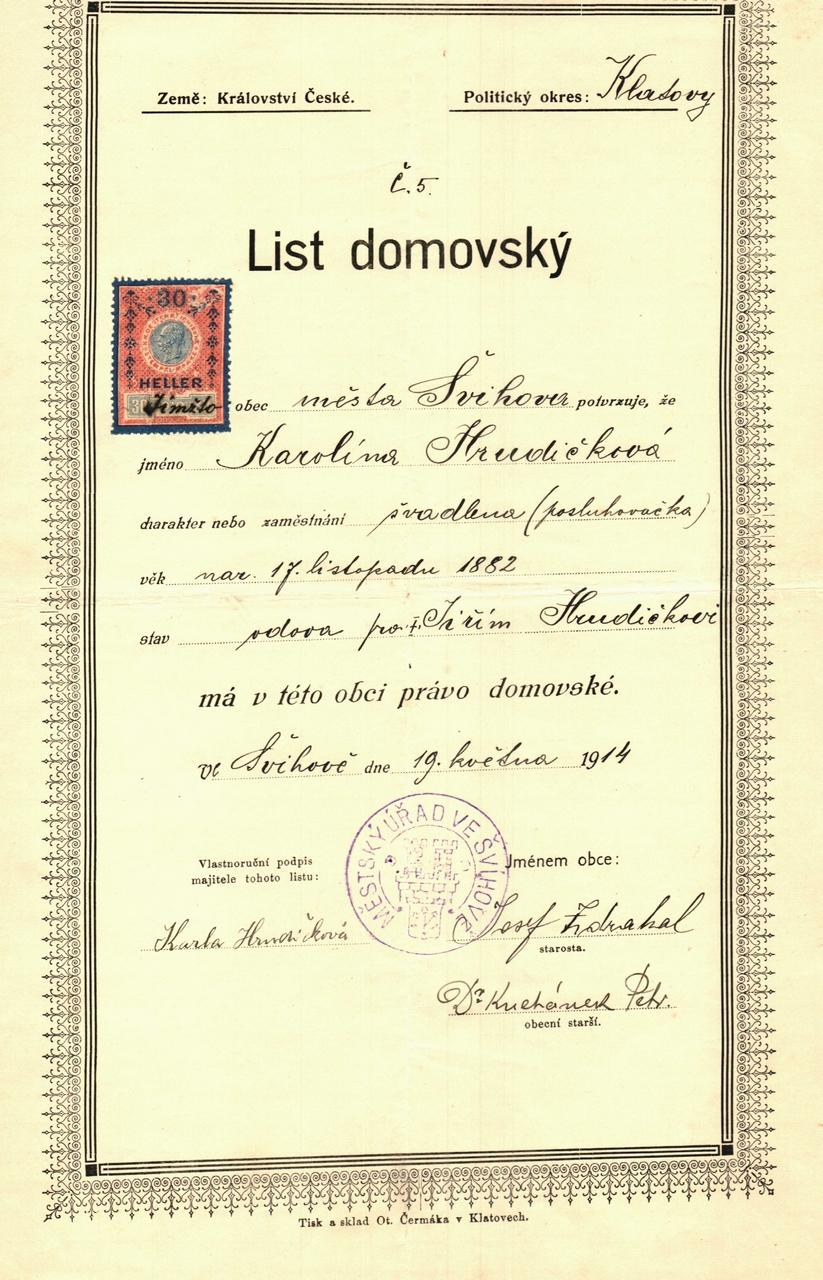 Země: Království České. Politický okres: Klatovy
Č. 5.
List domovský
30
HELLER
Tímto obec města Švihova potvrzuje, že
jméno Karolína Hrudičková
charakter nebo zaměstnání švadlena (posluhovačka)
věk nar. 17. listopadu 1882
stav vdova po † Jiřím Hrudičkovi
má v této obci právo domovské.
ve Švihově dne 19. května 1914
MĚSTSKÝ ÚŘAD VE ŠVIHOVĚ
Vlastnoruční podpis
majitele tohoto listu:
Jménem obce:
Karla Hrudičková
Josef Zdrahal
starosta.
Dr Kuchánek Petr.
obecní starší.
Tisk a sklad Ot. Čermáka v Klatovech.